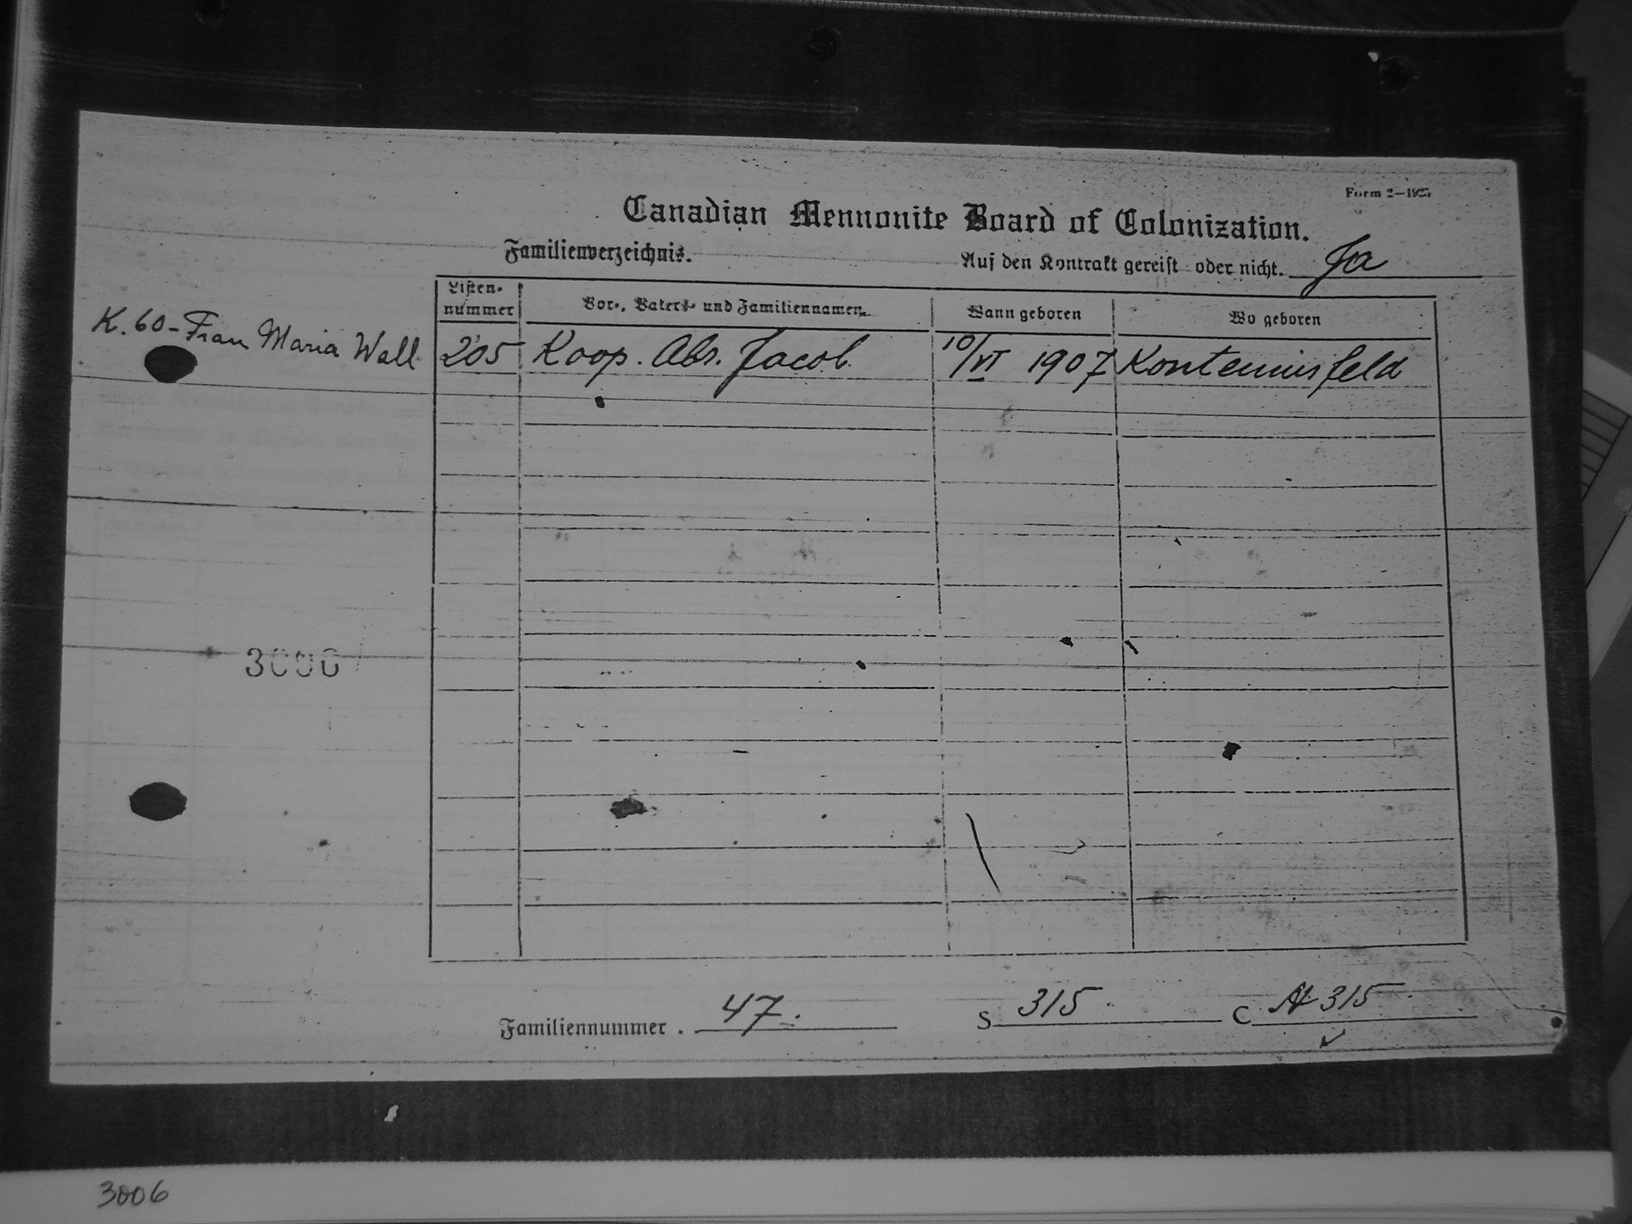 Form 2—1925
Canadian Mennonite Board of Colonization.
Familienverzeichnis.
Auf den Kontrakt gereist oder nicht. Ja
Listen-nummer
Vor-, Vaters- und Familiennamen
Wann geboren
Wo geboren
K. 60 - Frau Maria Wall
205 Koop. Abr. Jacob 10/VI 1907 Konteniusfeld
3006
Familiennummer. 47. S 315. C A 315.
3006